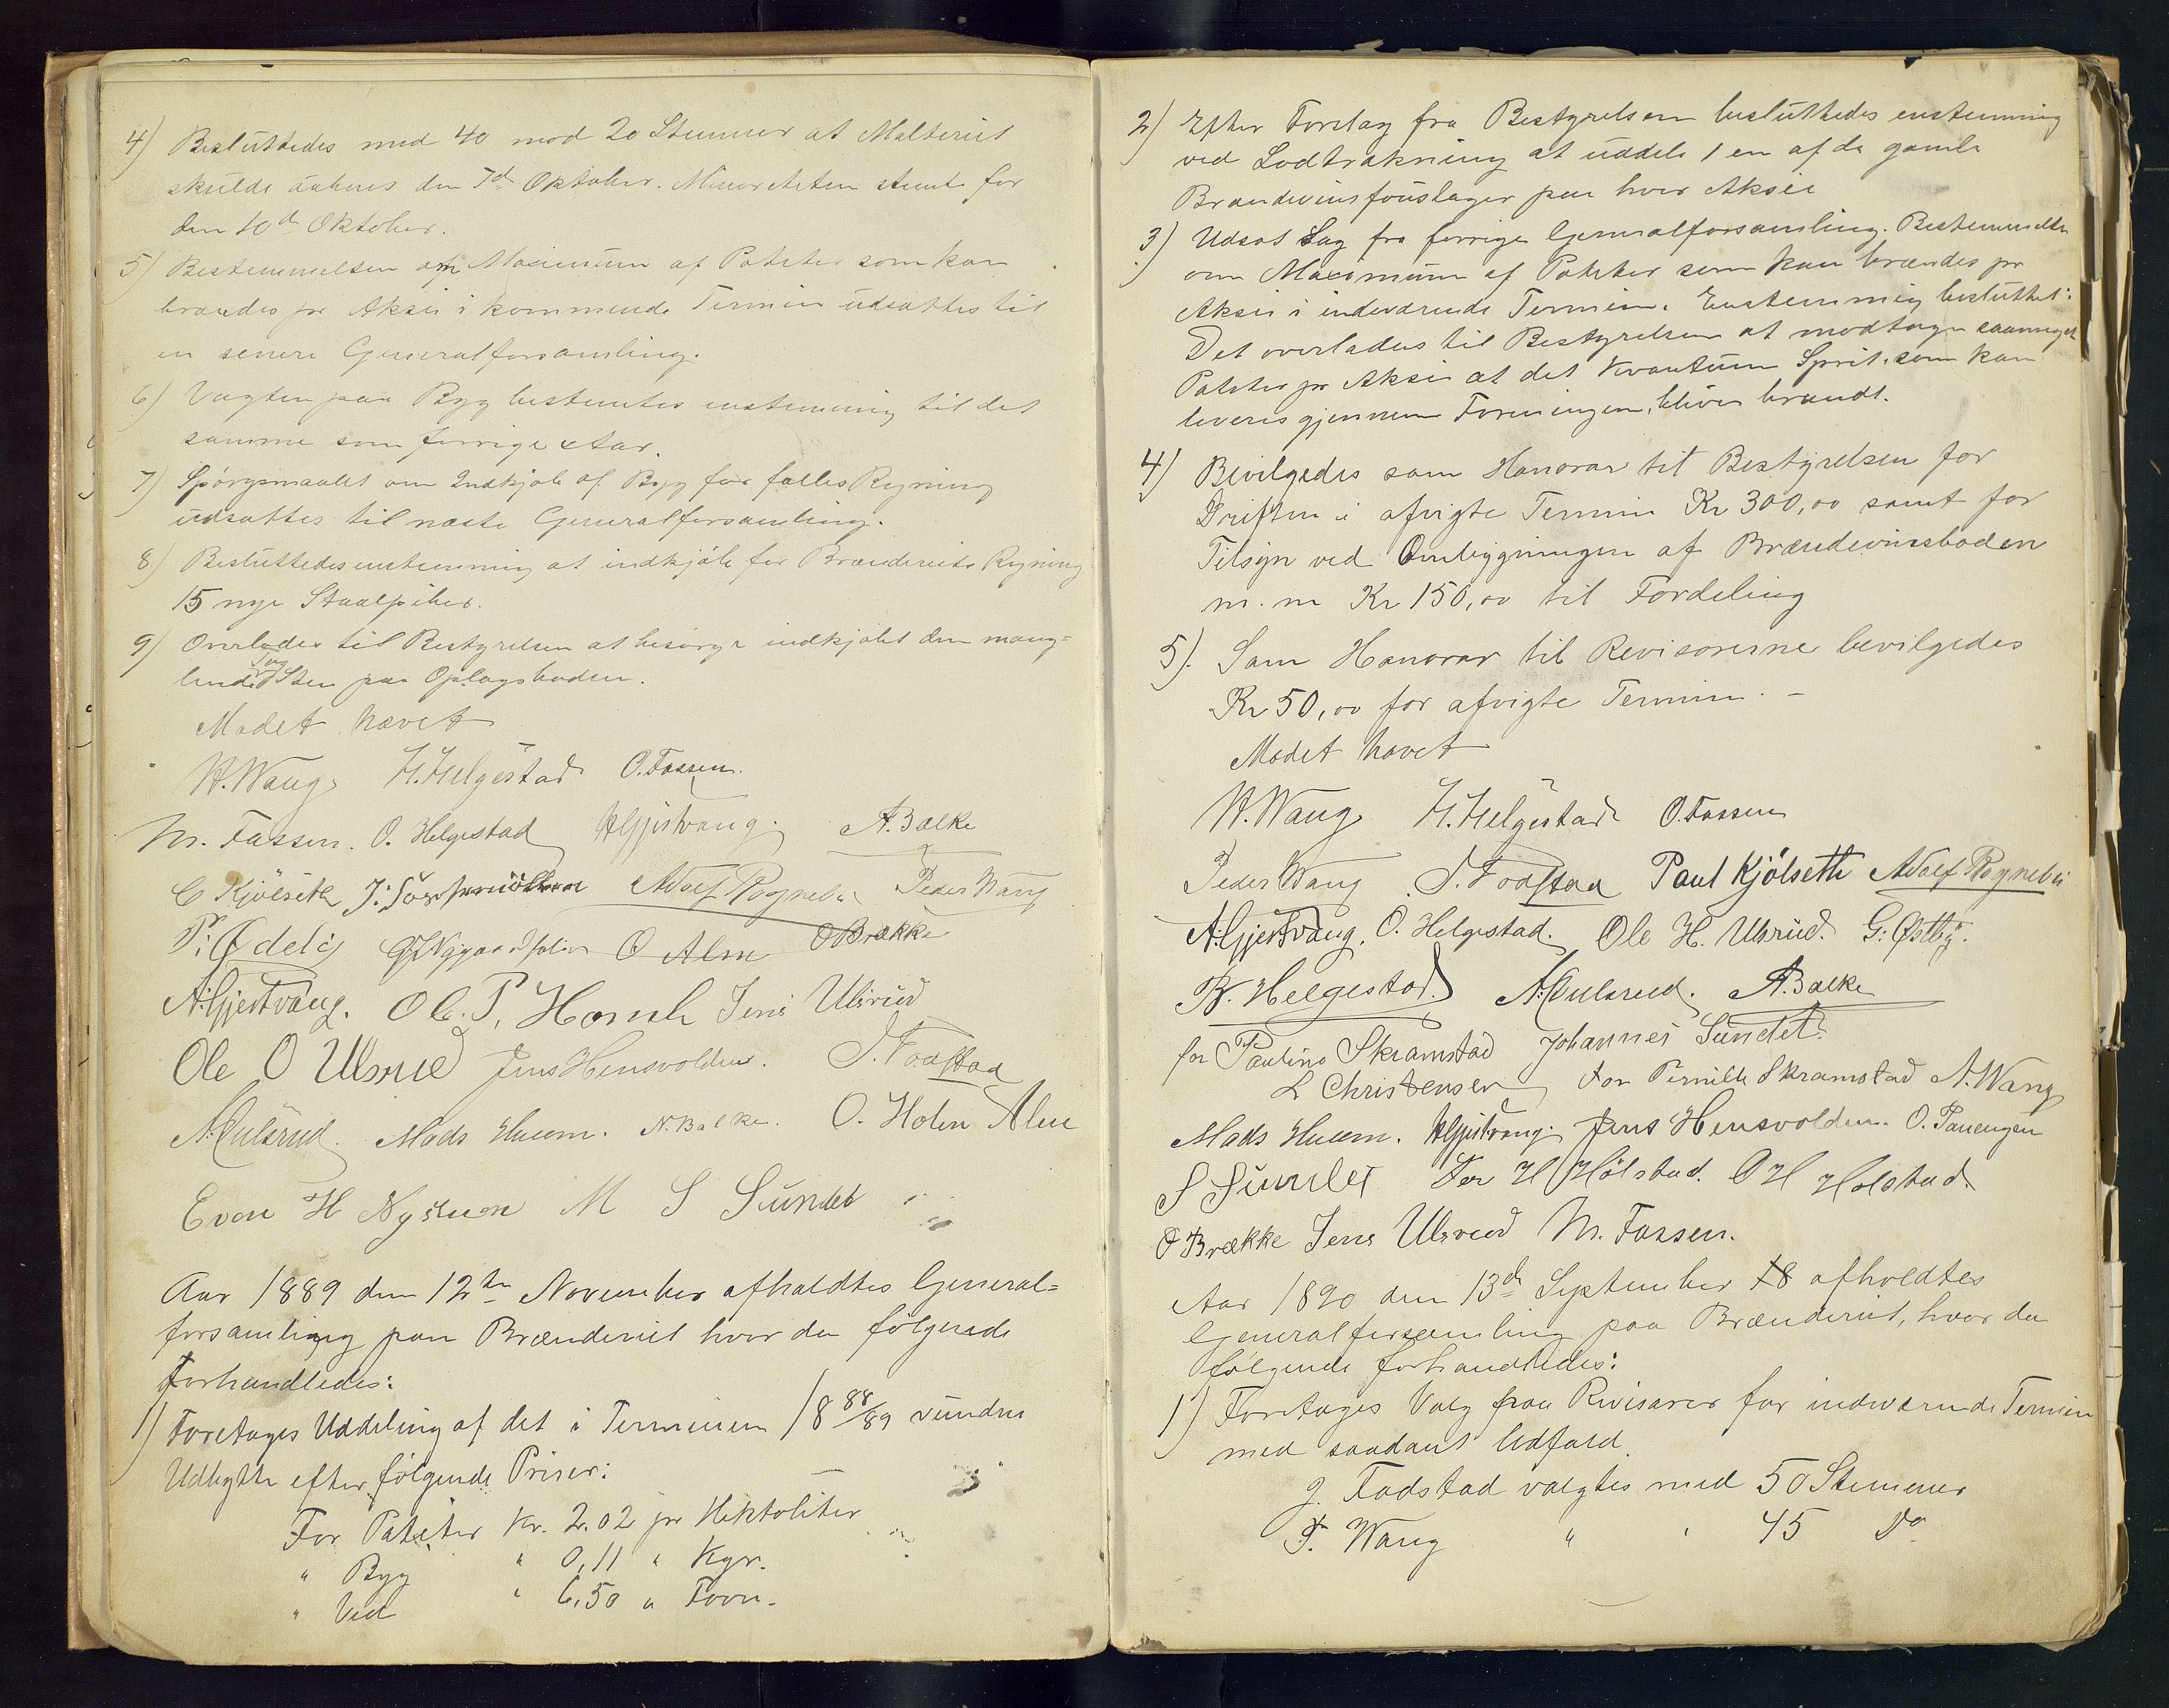 4) Besluttedes med 40 mod 20 Stemmer at Malteriet
skulde aabnes den 7d Oktober. Minoriteten stemte for
den 10d Oktober.
5) Bestemmelsen om Maximum af Poteter som kan
brændes pr Aksie i kommende Termin udsattes til
en senere Generalforsamling.
6) Vægten paa Byg bestemtes enstemmig til det
samme som forrige Aar.
7) Spörgsmaalet om Indkjöb af Byg for fælles Regning
udsattes til næste Generalforsamling.
8) Besluttedes enstemmig at indkjöbe for Brænderiets Regning
15 nye Staalpiber.
9) Overlodes til Bestyrelsen at besörge indkjöbt den mang=
lende Tag Sten paa Oplagsboden.
Mødet hævet
H. Wang H. Helgestad O. Fossen.
M. Fossen. O. Helgestad A Gjestvang. A. Balke
C Kjölseth Adolf Rognebü Peder Wang
P. Ødelij O Alm O Brække
A. Gjestvang. Ole. P. Jens Ulsrud
Ole O Ulsrud Jens Hensvolden. J. Fodstad
A. Eulsrud. Mads Huem. N. Balke. O. Holen Alm
Even H Nysuen M S Sundet
Aar 1889 den 12te November afholdtes General=
forsamling paa Brænderiet hvor da følgende
forhandledes:
1) Foretages Uddeling af det i Terminen 18 88/89 vundne
Udbytte efter følgende Priser:
For Poteter Kr. 2.02 pr Hektoliter
" Byg " 0,11 " Kgr.
" Ved " 6,50 " Favn.
2) Efter Forslag fra Bestyrelsen besluttedes enstemmig
ved Lodtrækning at uddele 1 en af de gamle
Brændevinsfoustager paa hver Aksie
3) Udsat Sag fra forrige Generalforsamling. Bestemmelse
om Maximum af Poteter som kan brændes pr
Aksie i indeværende Termin. Enstemmig besluttet:
Det overlades til Bestyrelsen at modtage saameget
Poteter pr Aksie at det Kvantum Sprit, som kan
leveres gjennem Foreningen, bliver brændt.
4) Bevilgedes som Honorar til Bestyrelsen for
Driften i afvigte Termin Kr 300,00 samt for
Tilsyn ved Ombygningen af Brændevinsboden
m. m Kr 150,00 til Fordeling
5). Som Honorar til Revisorerne bevilgedes
Kr 50,00 for afvigte Termin. –
Mødet hævet
H. Wang H. Helgestad O. Fossen
Peder Wang J. Fodstad Paul Kjölseth Adolf Rognebü
A. Gjestvang. O. Helgestad. Ole H. Ulsrud. G: Østby.
B. Helgestad. A. Eulsrud. A. Balke
for Pauline Skramstad Johannes Sundet.
L Christensen For Pernille Skramstad A. Wang
Mads Huem. A Gjestvang. Jens Hensvolden. O. Panengen
S Sundet For H Hölstad. O H Holstad.
O Brække Jens Ulsrud M. Fossen.
Aar 1890 den 13d September 18 afholdtes
Generalforsamling paa Brænderiet, hvor da
følgende forhandledes:
1) Foretages Valg paa Revisorer for indeværende Termin
med saadant Udfald.
J. Fodstad valgtes med 50 Stemmer
P. Wang " " 45 Do